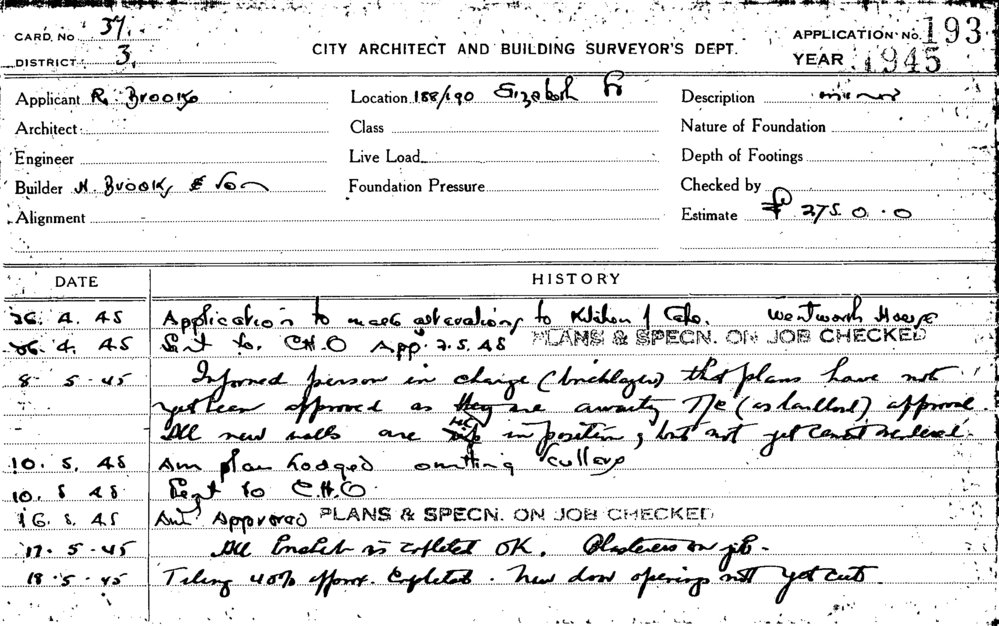 CARD. No 37.
DISTRICT 3.
CITY ARCHITECT AND BUILDING SURVEYOR'S DEPT.
APPLICATION No. 193
YEAR 1945
Applicant R. Brooks Location 188/190 Elizabeth St Description minor
Architect Class Nature of Foundation
Engineer Live Load Depth of Footings
Builder H. Brooks & Son Foundation Pressure Checked by
Alignment Estimate £ 275. 0. 0
DATE HISTORY
26. 4. 45 Application to make alterations to Kitchen / Cafe. Wentworth House
26. 4. 45 Sent to. C.H.O App. 2. 5. 45 PLANS & SPECN. ON JOB CHECKED
8 5. 45 Informed person in charge (bricklayer) that plans have not
yet been approved as they are awaiting T/C (as landlord) approval.
All new walls are in position, but not yet cement rendered.
10. 5. 45 Am plan lodged omitting Scullery
10. 5 45 Sent to C.H.O
16. 5. 45 Amd Approved PLANS & SPECN. ON JOB CHECKED
17. 5. 45 All is completed OK. Plasterers on job.
18. 5. 45 Tiling 40% approx. Completed. New door openings not yet cut.